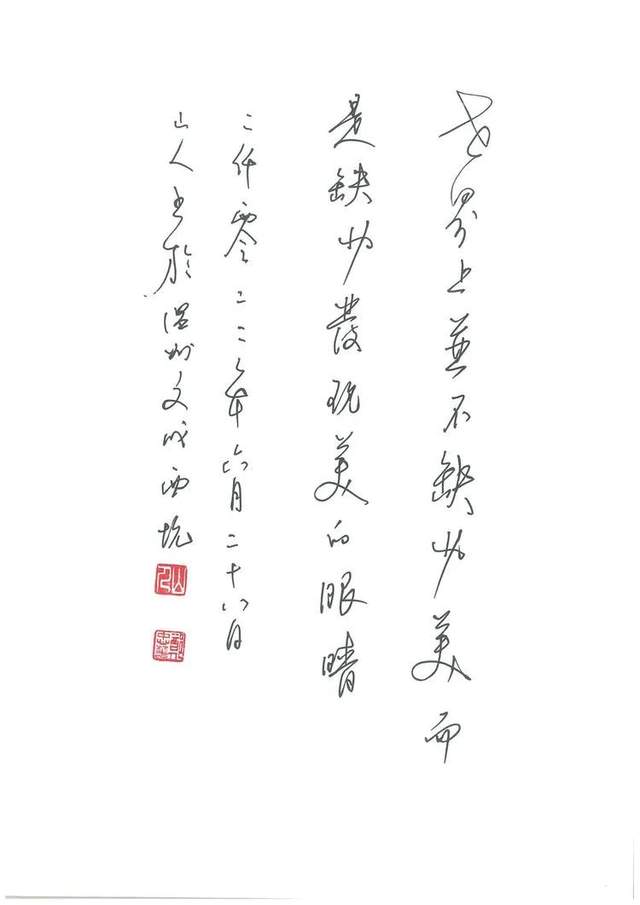 世界上並不缺少美而
是缺少發現美的眼睛
二仟零二二年六月二十八日
山人書於溫州文成西坑
山人